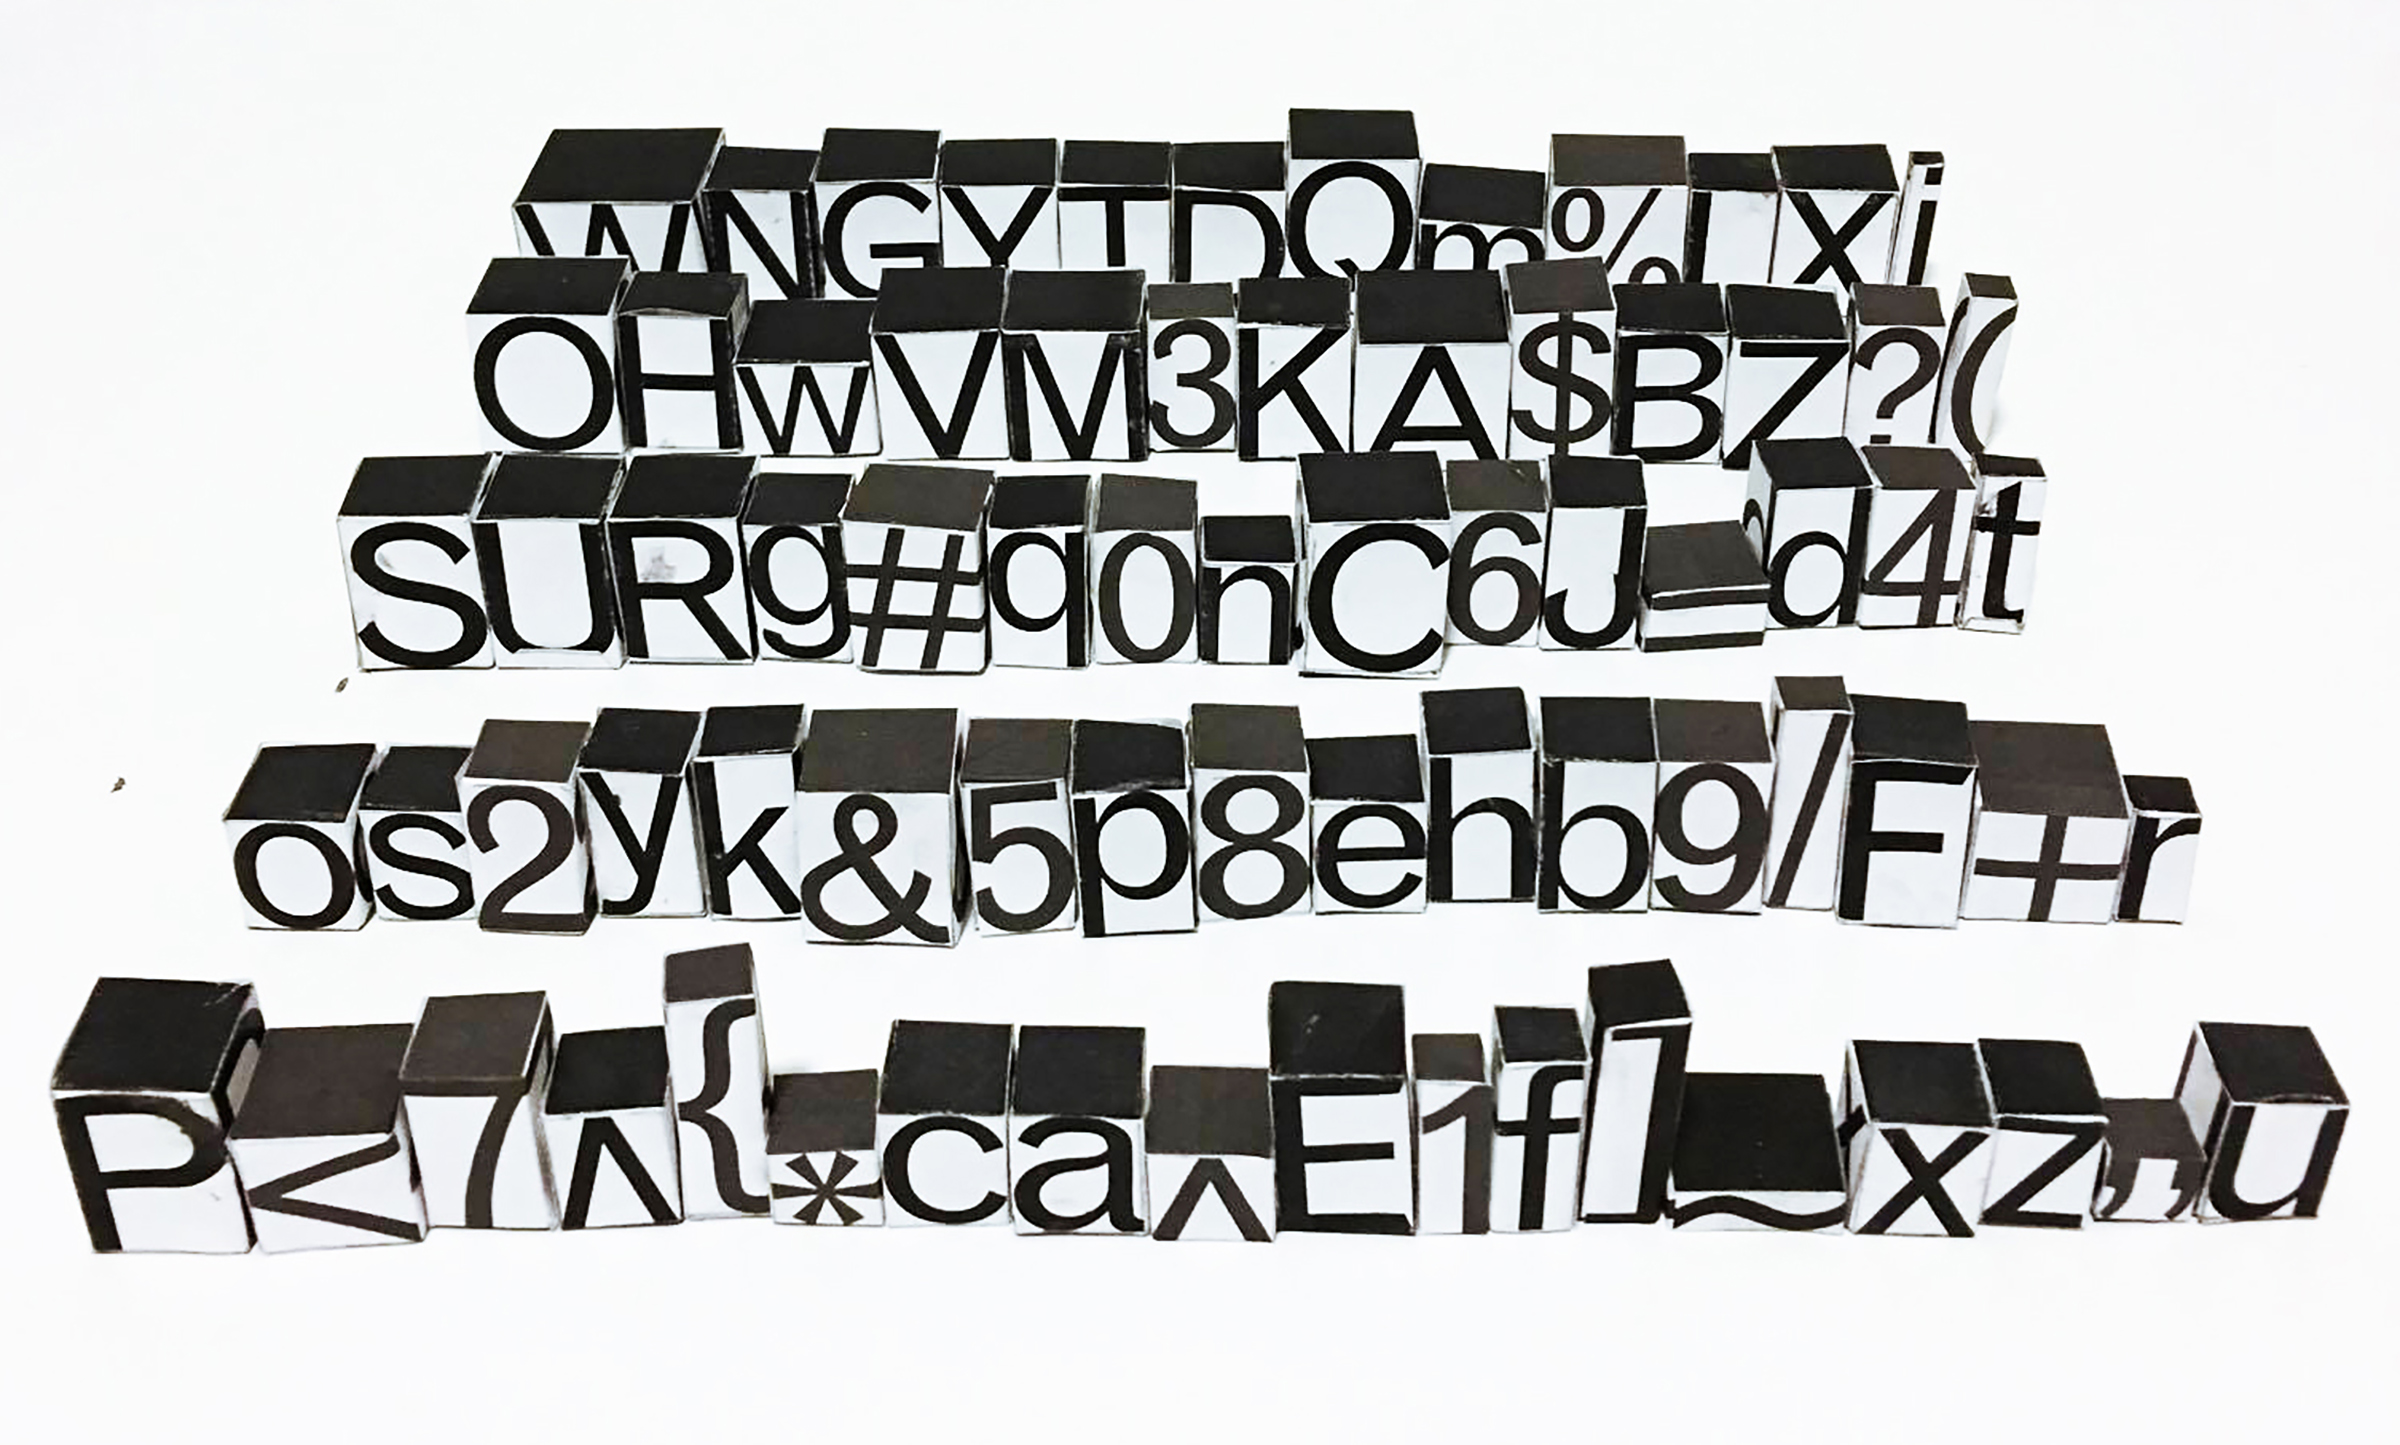 WNGYTDQm%LXi
OHwVM3KA$BZ?(
SURg#q0nC6J=d4t
os2yk&5p8ehb9/F+r
P<7ʌ{*ca^E1f]~xz"u